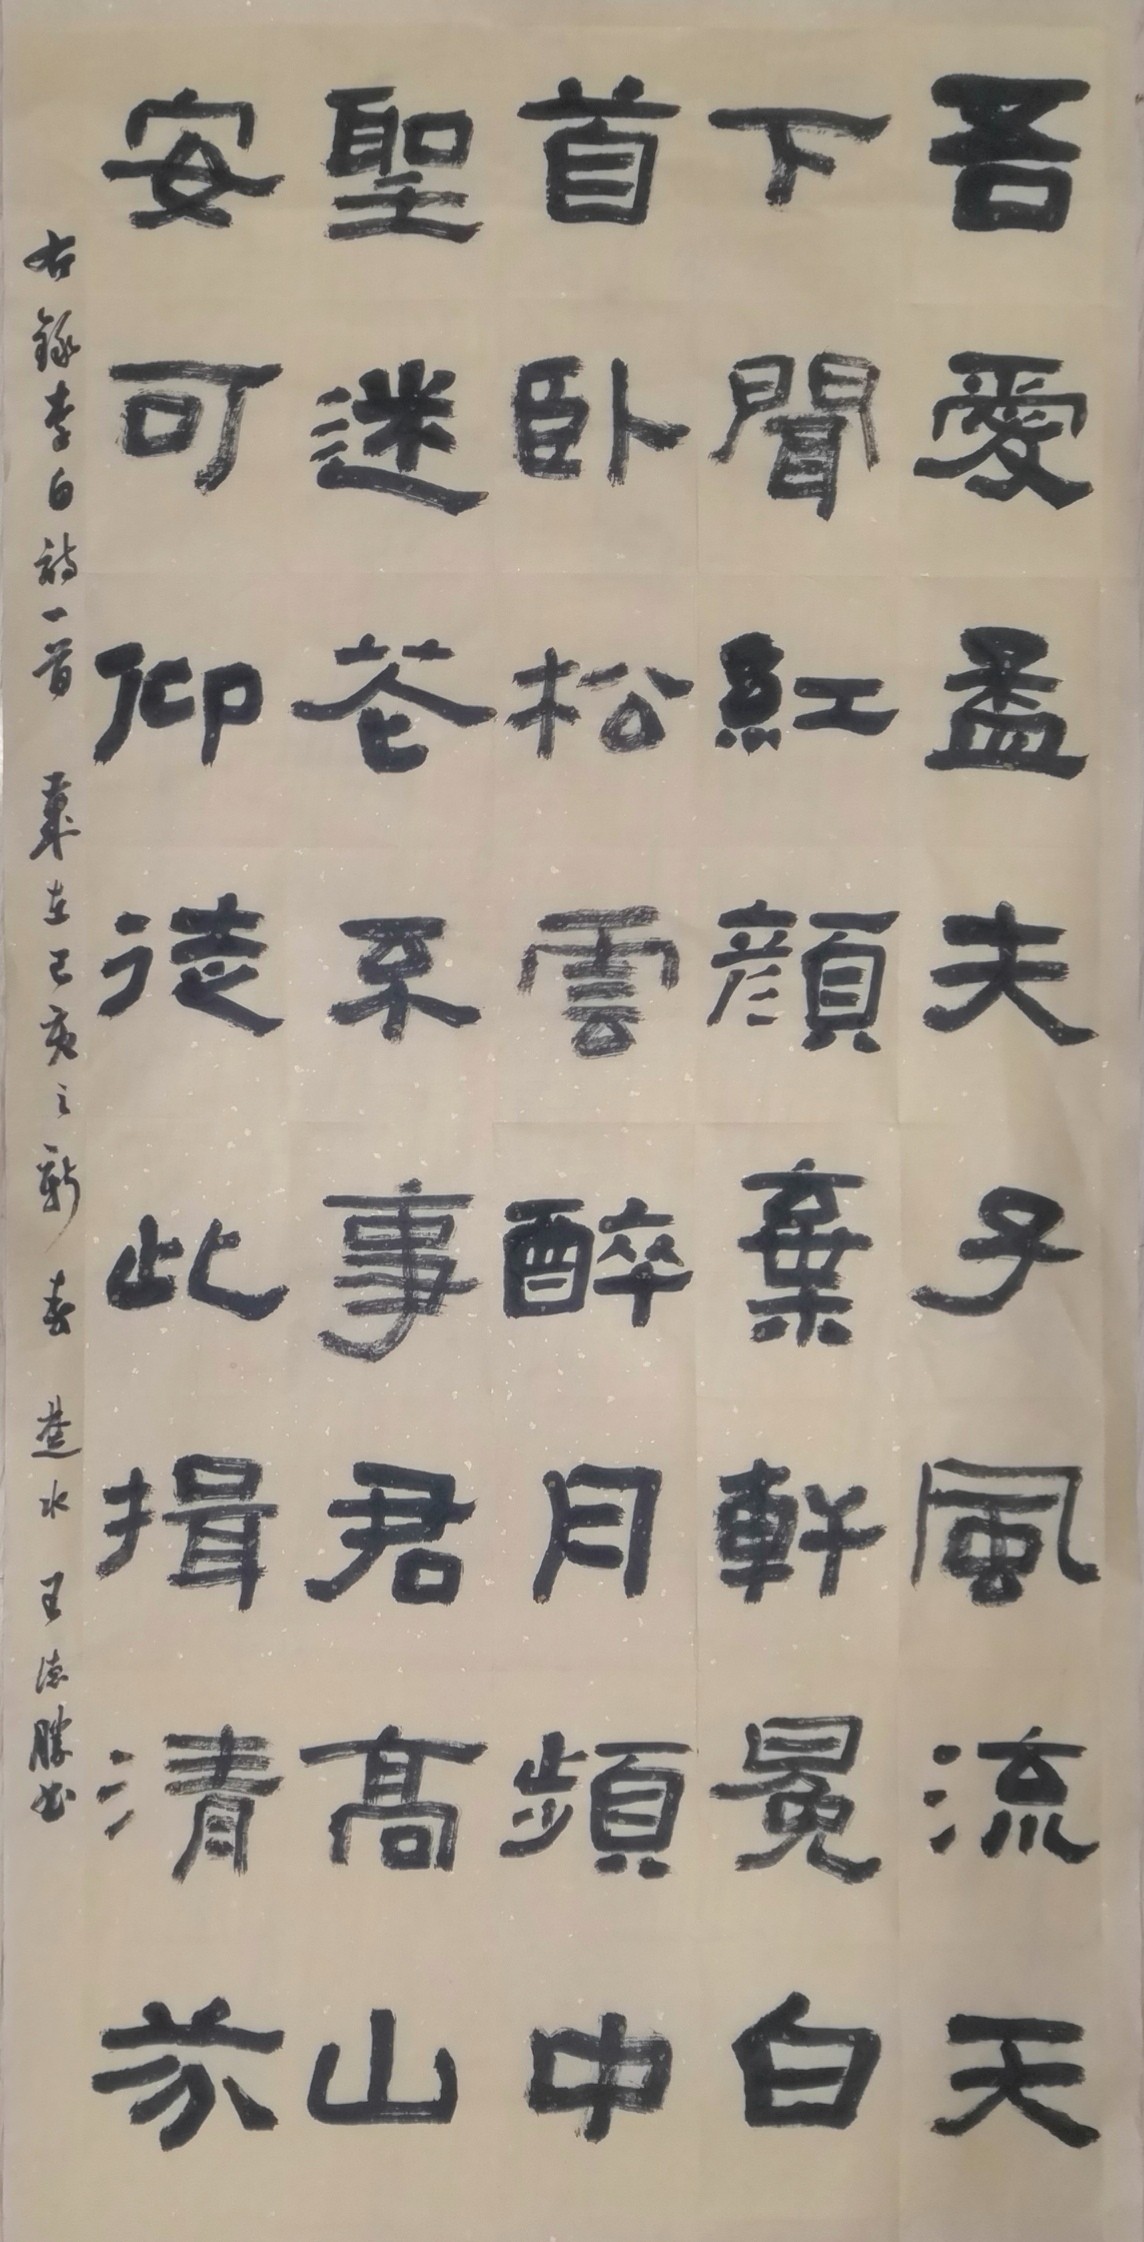 吾愛孟夫子風流天
下聞紅顔棄軒冕白
首卧松雲醉月頻中
聖迷花不事君高山
安可仰徒此揖清芬
右録李白詩一首 歲在己亥之新春 楚水 王德勝书